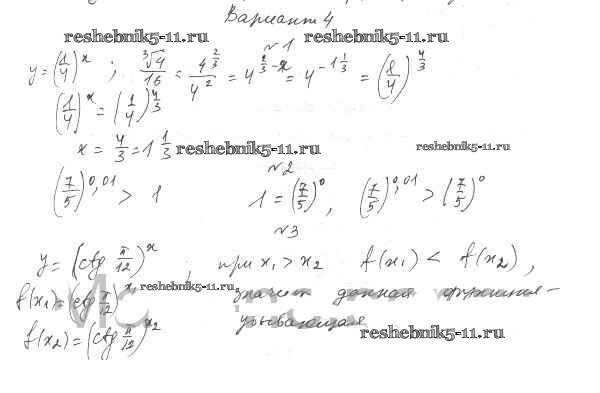 Вариант 4
reshebnik5-11.ru reshebnik5-11.ru
№1
y=(1/4)^x ; ∛4/16 = 4^(2/3)/4^2 = 4^(2/3-2) = 4^(-1 1/3) = (1/4)^(4/3)
(1/4)^x = (1/4)^(4/3)
x = 4/3 = 1 1/3 reshebnik5-11.ru reshebnik5-11.ru
№2
(7/5)^0,01 > 1 1 = (7/5)^0, (7/5)^0,01 > (7/5)^0
№3
y = (ctg π/12)^x ; при x₁ > x₂ f(x₁) < f(x₂),
f(x₁) = (ctg π/12)^x₁ reshebnik5-11.ru значит данная функция-
f(x₂) = (ctg π/12)^x₂ убывающая
reshebnik5-11.ru